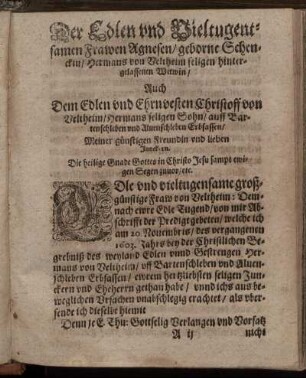 Der Edlen vnd Vieltugent-
samen Frawen Agnesen / geborne Schen-
ckin / Hermans von Veltheim seligen hinter-
gelassenen Witwin /
Auch
Dem Edlen vnd Ehrnvesten Christoff von
Veltheim / Hermans seligen Sohn / auff Bar-
tenschleben vnd Aluenschleben Erbsassen /
Meiner günstigen Freundin vnd lieben
Die heilige Gnade Gottes in Christo Jesu sampt ewi-
gen Segen zuuor / etc.
Edle vnd vieltugensame groß-
günstige Fraw von Veltheim: Dem-
nach ewre Edle Tugend / von mir Ab-
schrifft der Predig gebeten / welche ich
am 20 Nouembris / des vergangenen
1603. Jahrs bey der Christlichen Be-
grebniß des weyland Edlen vnnd Gestrengen Her-
mans von Veltheim / vff Bartenschleben vnd Aluen-
schleben Erbsassen / ewrem hertzliebsten seligen Jun-
ckern vnd Eheherrn gethan habe / vnnd ichs aus be-
weglichen Vrsachen vnabschlegig erachtet / als vber-
sende ich dieselbe hiemit
Denn je E. Thu: Gottselig Verlangen vnd Vorsatz
A ij nicht